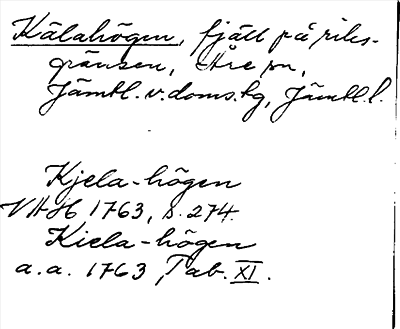 Kälahögen, fjäll på riks-
gränsen, Åre sn,
Jämtl. v. doms.hg, Jämtl. l.
Kjela-högen
VAH 1763, s. 274.
Kiela-högen
a.a. 1763, Tab. XI.